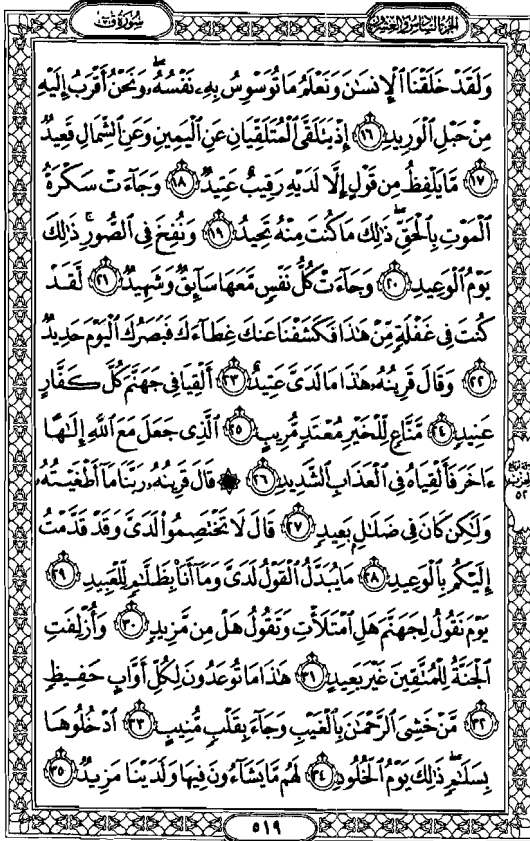 الجزء السادس والعشرون
سورة ق
وَلَقَدْ خَلَقْنَا ٱلْإِنسَٰنَ وَنَعْلَمُ مَا تُوَسْوِسُ بِهِۦ نَفْسُهُۥ وَنَحْنُ أَقْرَبُ إِلَيْهِ
مِنْ حَبْلِ ٱلْوَرِيدِ ١٦ إِذْ يَتَلَقَّى ٱلْمُتَلَقِّيَانِ عَنِ ٱلْيَمِينِ وَعَنِ ٱلشِّمَالِ قَعِيدٌ
١٧ مَّا يَلْفِظُ مِن قَوْلٍ إِلَّا لَدَيْهِ رَقِيبٌ عَتِيدٌ ١٨ وَجَآءَتْ سَكْرَةُ
ٱلْمَوْتِ بِٱلْحَقِّ ۖ ذَٰلِكَ مَا كُنتَ مِنْهُ تَحِيدُ ١٩ وَنُفِخَ فِى ٱلصُّورِ ۚ ذَٰلِكَ
يَوْمُ ٱلْوَعِيدِ ٢٠ وَجَآءَتْ كُلُّ نَفْسٍ مَّعَهَا سَآئِقٌ وَشَهِيدٌ ٢١ لَّقَدْ
كُنتَ فِى غَفْلَةٍ مِّنْ هَٰذَا فَكَشَفْنَا عَنكَ غِطَآءَكَ فَبَصَرُكَ ٱلْيَوْمَ حَدِيدٌ
٢٢ وَقَالَ قَرِينُهُۥ هَٰذَا مَا لَدَىَّ عَتِيدٌ ٢٣ أَلْقِيَا فِى جَهَنَّمَ كُلَّ كَفَّارٍ
عَنِيدٍ ٢٤ مَّنَّاعٍ لِّلْخَيْرِ مُعْتَدٍ مُّرِيبٍ ٢٥ ٱلَّذِى جَعَلَ مَعَ ٱللَّهِ إِلَٰهًا
ءَاخَرَ فَأَلْقِيَاهُ فِى ٱلْعَذَابِ ٱلشَّدِيدِ ٢٦ ۞ قَالَ قَرِينُهُۥ رَبَّنَا مَآ أَطْغَيْتُهُۥ
وَلَٰكِن كَانَ فِى ضَلَٰلٍۭ بَعِيدٍ ٢٧ قَالَ لَا تَخْتَصِمُوا۟ لَدَىَّ وَقَدْ قَدَّمْتُ
إِلَيْكُم بِٱلْوَعِيدِ ٢٨ مَا يُبَدَّلُ ٱلْقَوْلُ لَدَىَّ وَمَآ أَنَا۠ بِظَلَّٰمٍ لِّلْعَبِيدِ ٢٩
يَوْمَ نَقُولُ لِجَهَنَّمَ هَلِ ٱمْتَلَأْتِ وَتَقُولُ هَلْ مِن مَّزِيدٍ ٣٠ وَأُزْلِفَتِ
ٱلْجَنَّةُ لِلْمُتَّقِينَ غَيْرَ بَعِيدٍ ٣١ هَٰذَا مَا تُوعَدُونَ لِكُلِّ أَوَّابٍ حَفِيظٍ
٣٢ مَّنْ خَشِىَ ٱلرَّحْمَٰنَ بِٱلْغَيْبِ وَجَآءَ بِقَلْبٍ مُّنِيبٍ ٣٣ ٱدْخُلُوهَا
بِسَلَٰمٍ ۖ ذَٰلِكَ يَوْمُ ٱلْخُلُودِ ٣٤ لَهُم مَّا يَشَآءُونَ فِيهَا وَلَدَيْنَا مَزِيدٌ ٣٥
٥٢
٥١٩